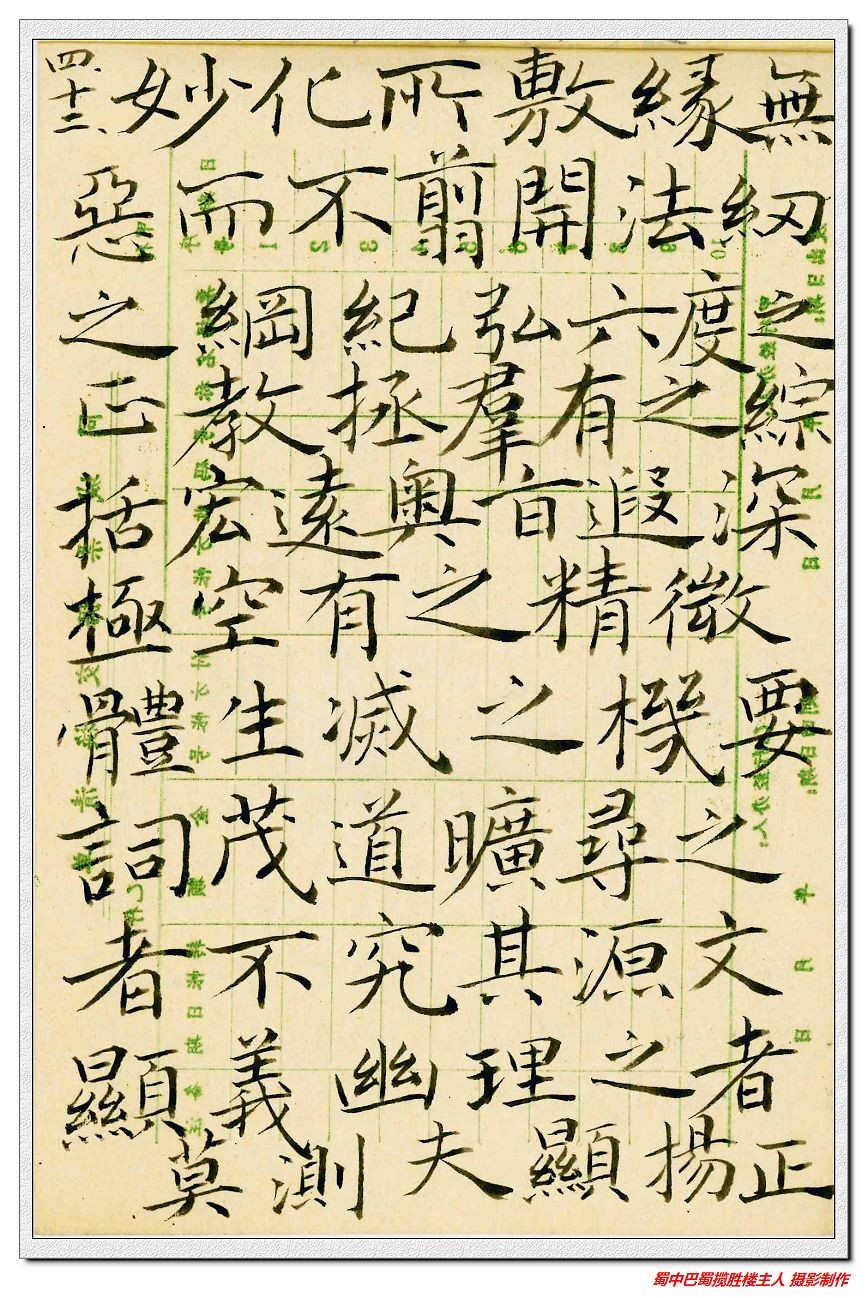 四十二、妙化所敷緣無
惡而不翦開法紉
之綱紀弘六度之
正教拯羣有之綜
括宏遠奧旨遐深
極空有之精微
體生滅之機要
詞茂道曠尋之
者不究其源文
顯義幽理之者
莫測夫顯揚正
蜀中巴蜀揽胜楼主人 摄影制作